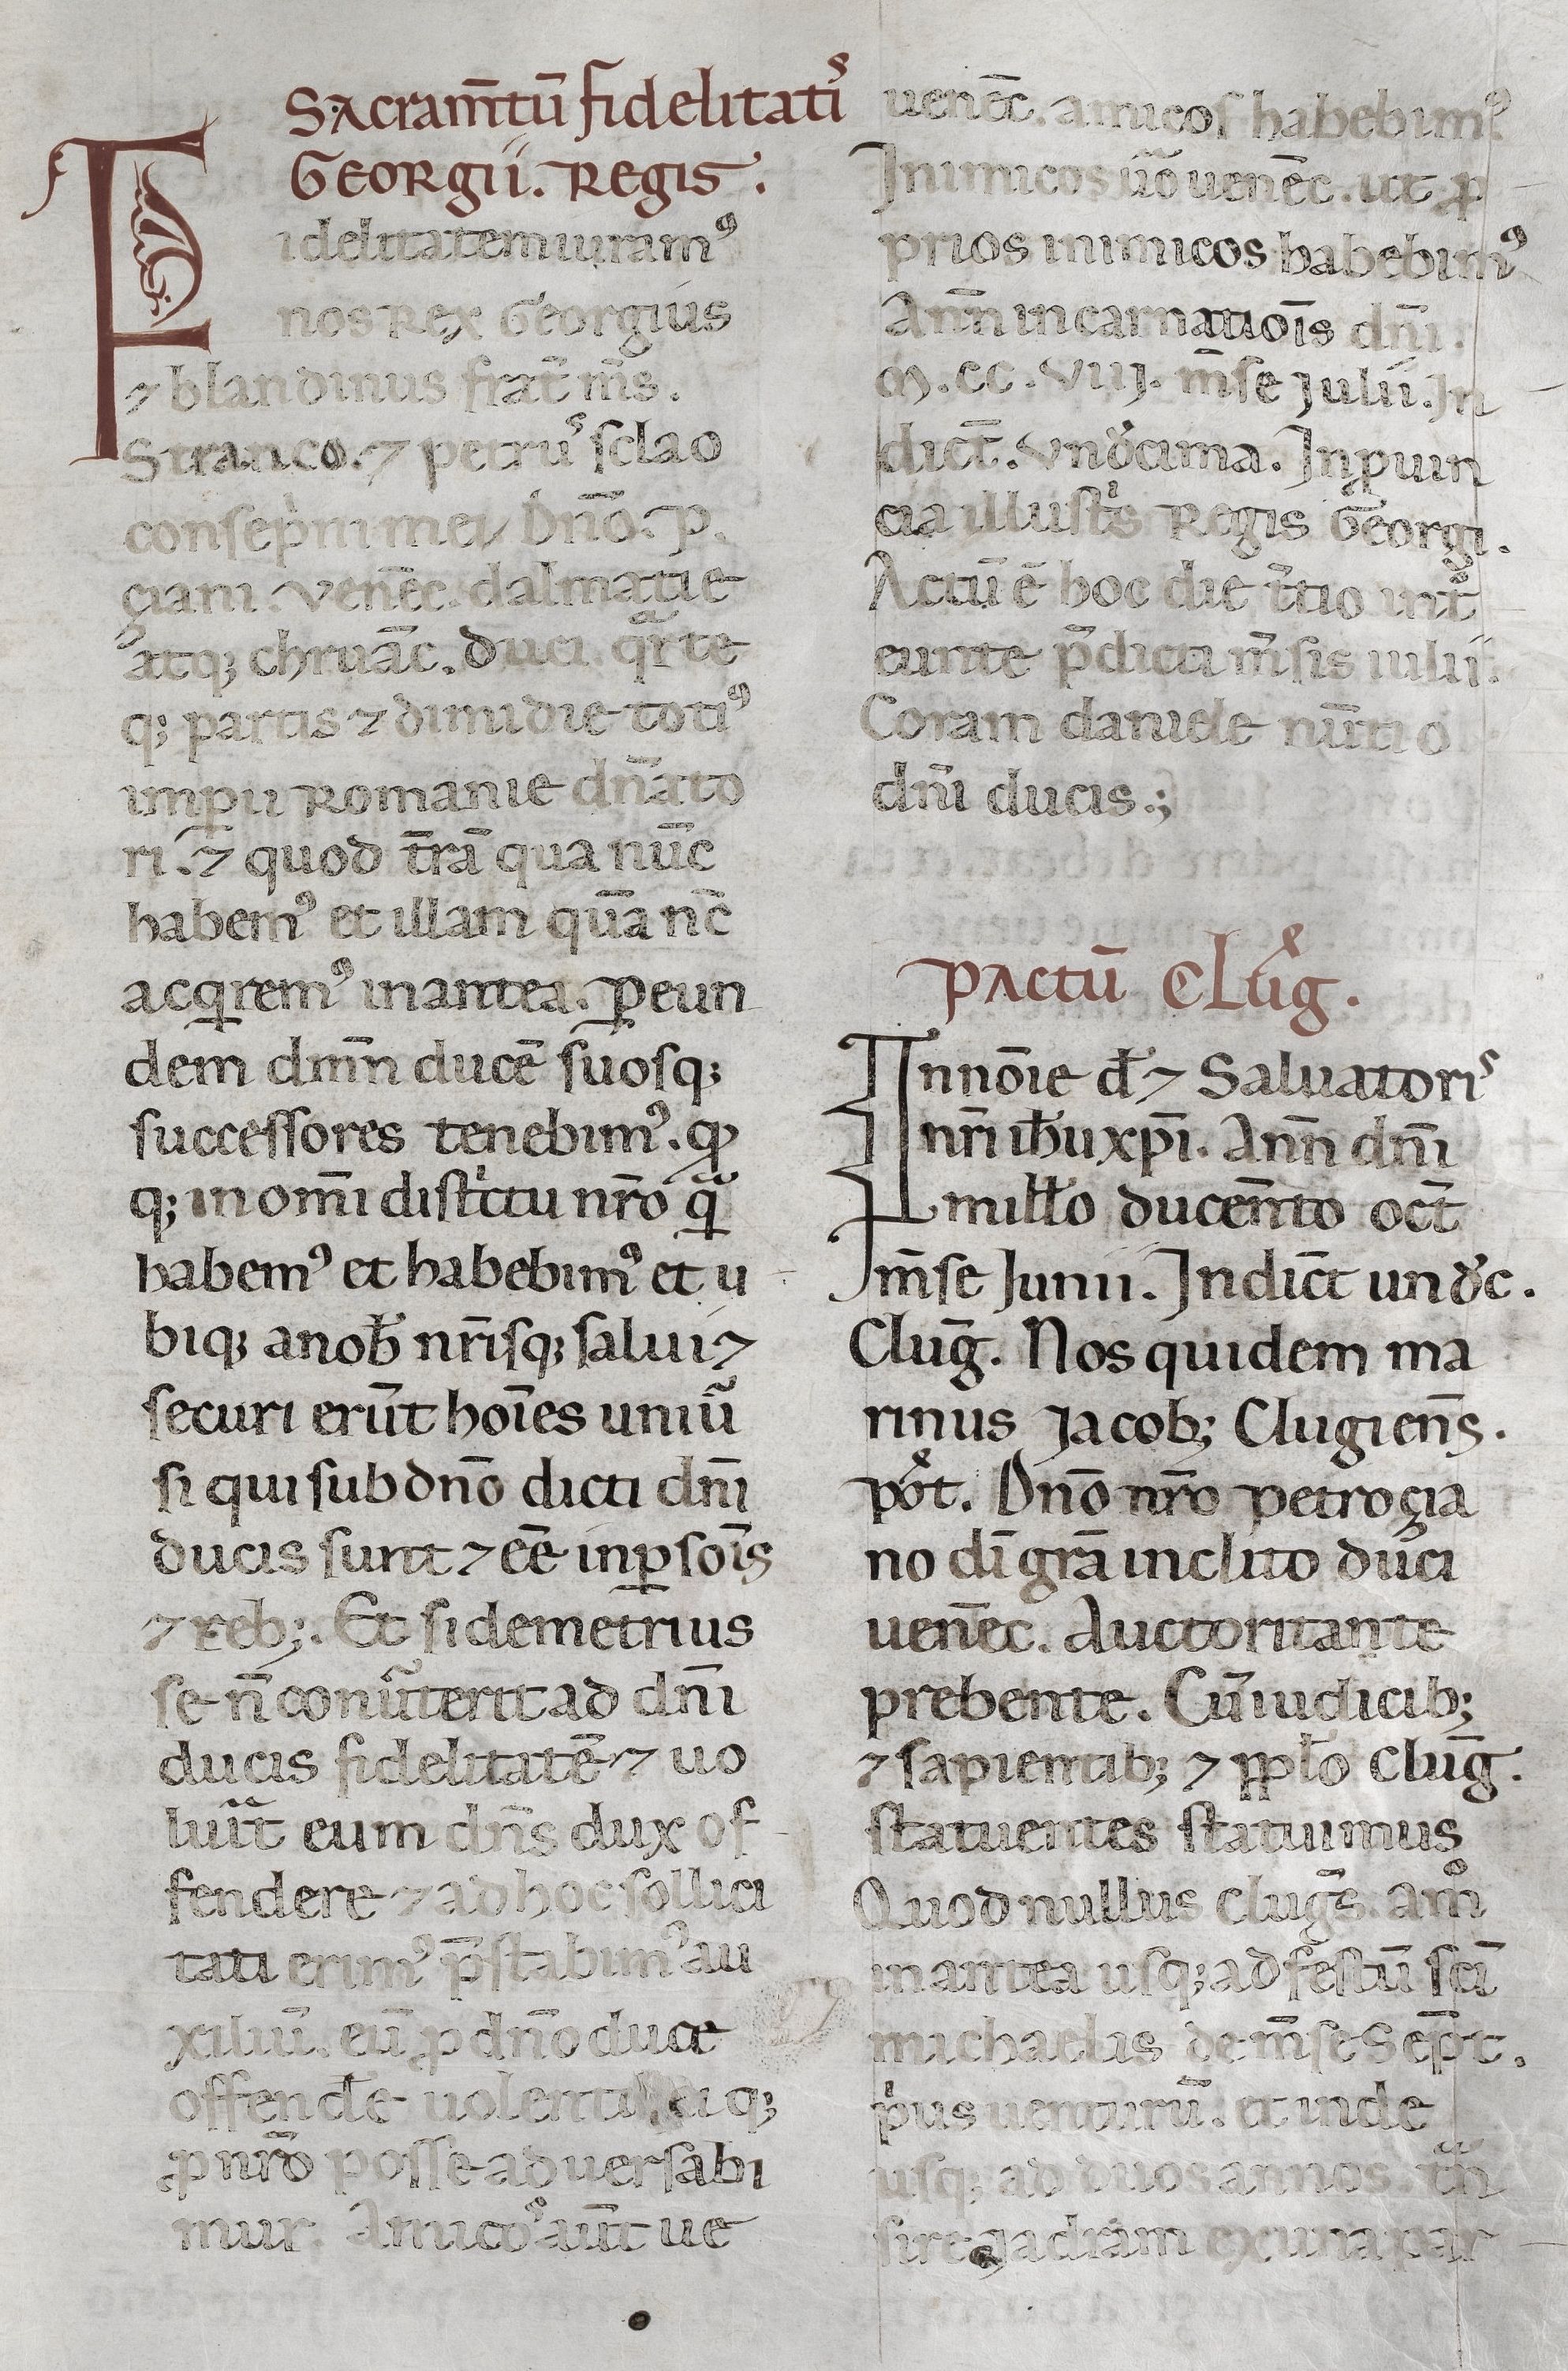 Sacram̄tū fidelitatiˢ
Georgii. Regis.
Fidelitatem iuramꝰ
nos Rex Georgius
⁊ blandinus frat̄ m̄s.
Stranco. ⁊ petruˢ sclao
consepͥni mei, Dn̄o. p.
çiani. Venēc. dalmatie
atq; chruāc. Duci. qͣrte
q; partis ⁊ dimidie totiꝰ
imꝑii Romanie dn̄ato
ri. ⁊ quod t̄rā qua nūc
habemꝰ et illam quā nc̄
acqͥremꝰ in antea. ꝑ eun
dem dmn̄ ducē suosq;
successores tenebimꝰ. ꝙ
q; in om̄i distͥctu nr̄o qͣ
habemꝰ et habebimꝰ et u
biq; a nob̄ nr̄isq; salui ⁊
securi erūt hoīes uniũ
si qui sub dn̄o dicti dn̄i
ducis sunt ⁊ eē in ꝑsoīs
⁊ reb;. Et si demetrius
se n̄ conũterit ad dn̄i
ducis fidelitatē ⁊ uo
luit̃ eum dn̄s dux of
fendere ⁊ ad hoc sollici
tati erimꝰ p̄stabimꝰ au
xiliū. eū ꝓ dn̄o duce
offend̄e uolenti q;
ꝓ nr̄o posse aduersabi
mur. Amicoˢ aūt ue
uenēc. amicos habebimꝰ.
Inimicos ũo uenēc. ut ꝓ
prios inimicos habebimꝰ
Ann̄ incarnatiōis dn̄i.
ꝳ. cc. viij. m̄se Julii. In
dict̄. Vndͤcima. In ꝓuin
cia illustͥs Regis Georgi.
Actū ē hoc die t̃tio int̃
eunte p̄dicti m̄sis iulii.
Coram daniele nūtio
dn̄i ducis.;
Pactū Clug̃.
In noīe dī ⁊ Saluatoriˢ
nr̄i ih̄u xp̄i. Ann̄ dn̄i
mill̄o ducem̄to oct̄
m̄se Junii. Indict̄ undͤc.
Cluḡ. Nos quidem ma
rinus Jacob; Clugien̄s.
pot̃. Dn̄o nr̄o petro çia
no dī gr̄a inclito duci
uenēc. Auctoritante
prebente. Cū iudicib;
⁊ sapientib; ⁊ ppl̄o Cluḡ.
statuentes statuimus
Quod nullus clug̃s. amͦ
in antea usq; ad festū sc̄i
michaelis de m̄se Sep̄t.
pͥus uenturū. et inde
usq; ad duos annos. t̃n
sire Jadram ex una par